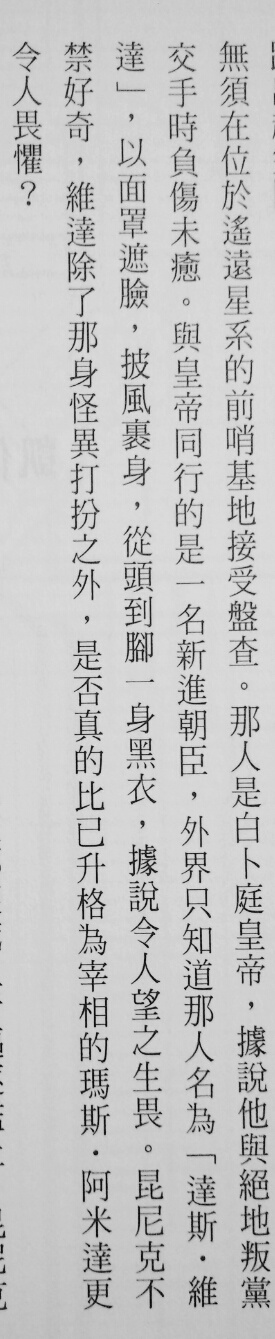 無須在位於遙遠星系的前哨基地接受盤查。那人是白卜庭皇帝，據說他與絕地叛黨
交手時負傷未癒。與皇帝同行的是一名新進朝臣，外界只知道那人名為「達斯・維
達」，以面罩遮臉，披風裹身，從頭到腳一身黑衣，據說令人望之生畏。昆尼克不
禁好奇，維達除了那身怪異打扮之外，是否真的比已升格為宰相的瑪斯・阿米達更
令人畏懼？